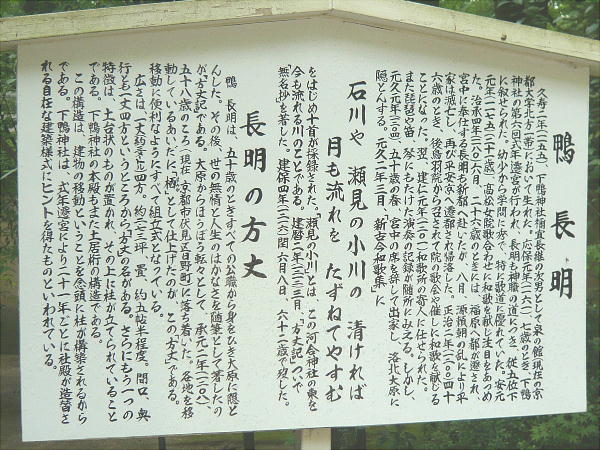 鴨 長 明
久寿二年(一一五五)、下鴨神社禰宜長継の次男として泉の館(現在の京
都大学北方)において生れた。応保元年(一一六一)、七歳のとき、下鴨
神社の第六回式年遷宮が行われ、長明も神職の道につき、従五位下
に叙せられた。幼少から学問に秀で、特に歌道に優れていた。安元
元年(一一七五)二十一歳、高松女院歌合わせに和歌を献じ注目をあつめ
た。治承四年(一一八〇)六月、二十六歳のときには、福原へ都が遷され、
宮中に奉仕する長明も新都へ赴いたが、八月、源頼朝の乱により平
家は滅亡し、再び平安京へ遷都され帰洛した。正治二年(一二〇〇)四十
六歳のとき、後鳥羽院から召されて院の歌会や催しに和歌を献ずる
ことになった。翌、建仁元年(一二〇一)和歌所の寄人に任せられた。
また琵琶や笛、琴にもたけた演奏の記録が随所にみえる。しかし、
元久元年(一二〇四)、五十歳の春、宮中の席を辞して出家し、洛北大原に
隠とんする。元久二年三月、「新古今和歌集」に
石川や 瀬見の小川の 清ければ
月も流れを たずねてやすむ
をはじめ十首が採録された。「瀬見の小川」とは、この河合神社の東を
今も流れる川のことである。建暦二年(一二一二)三月、「方丈記」ついで
「無名抄」を著した。建保四年(一二一六)閏六月八日、六十二歳で歿した。
長明の方丈
鴨 長明は、五十歳のときすべての公職から身をひき大原に隠と
んした。その後、世の無情と人生のはかなさを随筆として著したの
が「方丈記」である。大原からほうぼう転々として、承元二年(一二〇八)、
五十八歳のころ(現在 京都市伏見区日野町)に落ち着いた。各地を移
動しているあいだに、「栖」として仕上げたのが、この「方丈」である。
移動に便利なようにすべて組立式となっている。
広さは一丈約三メートル四方、約二.七三坪、畳、約五帖半程度。間口、奥
行とも一丈四方というところから「方丈」の名がある。さらにもう一つの
特徴は、土台状のものが置かれ、その上に柱が立てられていること
である。下鴨神社の本殿もまた土居桁の構造である。
この構造は、建物の移動ということを念頭に柱が構築されるから
である。下鴨神社は、式年遷宮により二十一年ごとに社殿が造替さ
れる自在な建築様式にヒントを得たものといわれている。